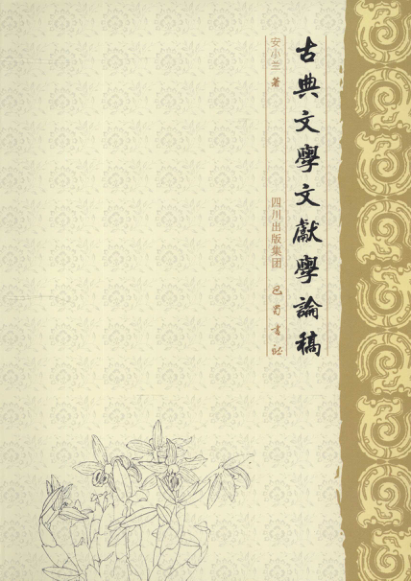 古典文學文獻學論稿
安小兰 著
四川出版集团 巴蜀書社